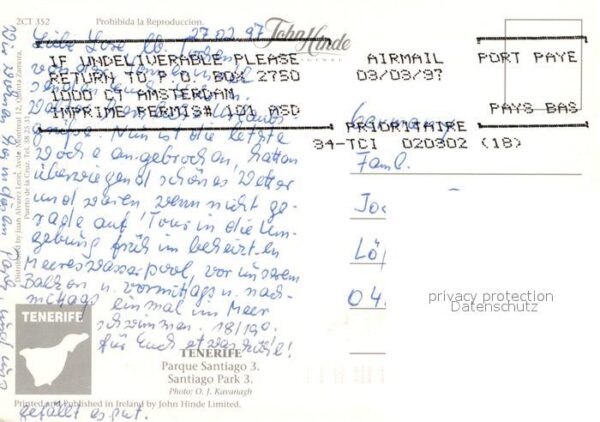 ZCT 352
Prohibida la Reproduccion.
John Hinde
27.02.97
IF UNDELIVERABLE PLEASE
RETURN TO P.O. BOX 2750
1000 CT AMSTERDAM
IMPRIME PERMIS# 101 ASD
AIRMAIL
03/03/97
PORT PAYE
PAYS BAS
PRIORITAIRE
34-TCI 020302 (18)
Liebe
Nun ist die letzte
Woche angebrochen, hatten
überwiegend schönes Wetter
und waren wenn nicht ge-
rade auf Tour in die Um-
gebung früh im beheizten
Meereswasserpool, vor unserem
Balkon u. vormittags u. nach-
mittags einmal im Meer
schwimmen. 18/190.
für Euch etwas kühl!
Wir wohnen
gefällt es gut.
Fam.
Jo
Lö
04
privacy protection
Datenschutz
TENERIFE
TENERIFE
Parque Santiago 3.
Santiago Park 3.
Photo: O. J. Kavanagh
Printed and Published in Ireland by John Hinde Limited.
Distributed by Juan Alvarez Leon,
Puerto de la Cruz. Tel. 38.25.31.